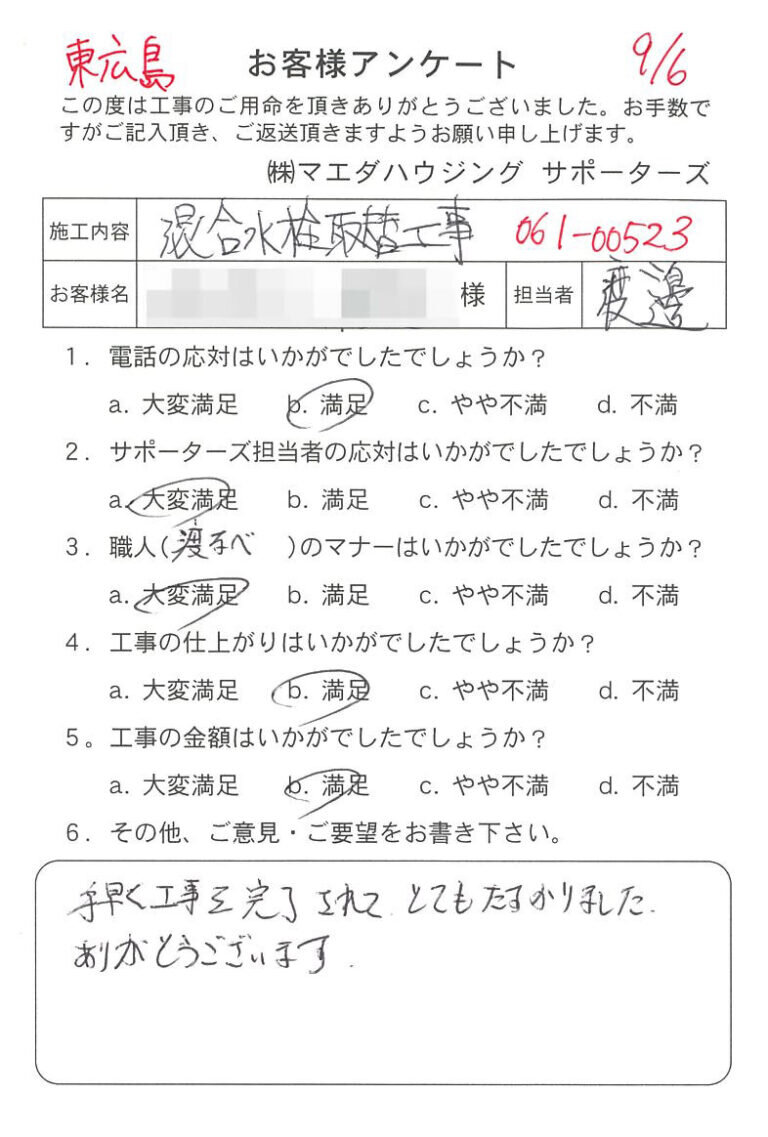 東広島 お客様アンケート 9/6
この度は工事のご用命を頂きありがとうございました。お手数で
すがご記入頂き、ご返送頂きますようお願い申し上げます。
㈱マエダハウジング サポーターズ
施工内容 混合水栓取替工事 061-00523
お客様名 様 担当者 渡邊
1. 電話の応対はいかがでしたでしょうか？
a. 大変満足 b. 満足 c. やや不満 d. 不満
2. サポーターズ担当者の応対はいかがでしたでしょうか？
a. 大変満足 b. 満足 c. やや不満 d. 不満
3. 職人(渡なべ )のマナーはいかがでしたでしょうか？
a. 大変満足 b. 満足 c. やや不満 d. 不満
4. 工事の仕上がりはいかがでしたでしょうか？
a. 大変満足 b. 満足 c. やや不満 d. 不満
5。工事の金額はいかがでしたでしょうか？
a. 大変満足 b. 満足 c. やや不満 d. 不満
6. その他、ご意見・ご要望をお書き下さい。
手早く工事を完了されて とてもたすかりました.
ありがとうございます.